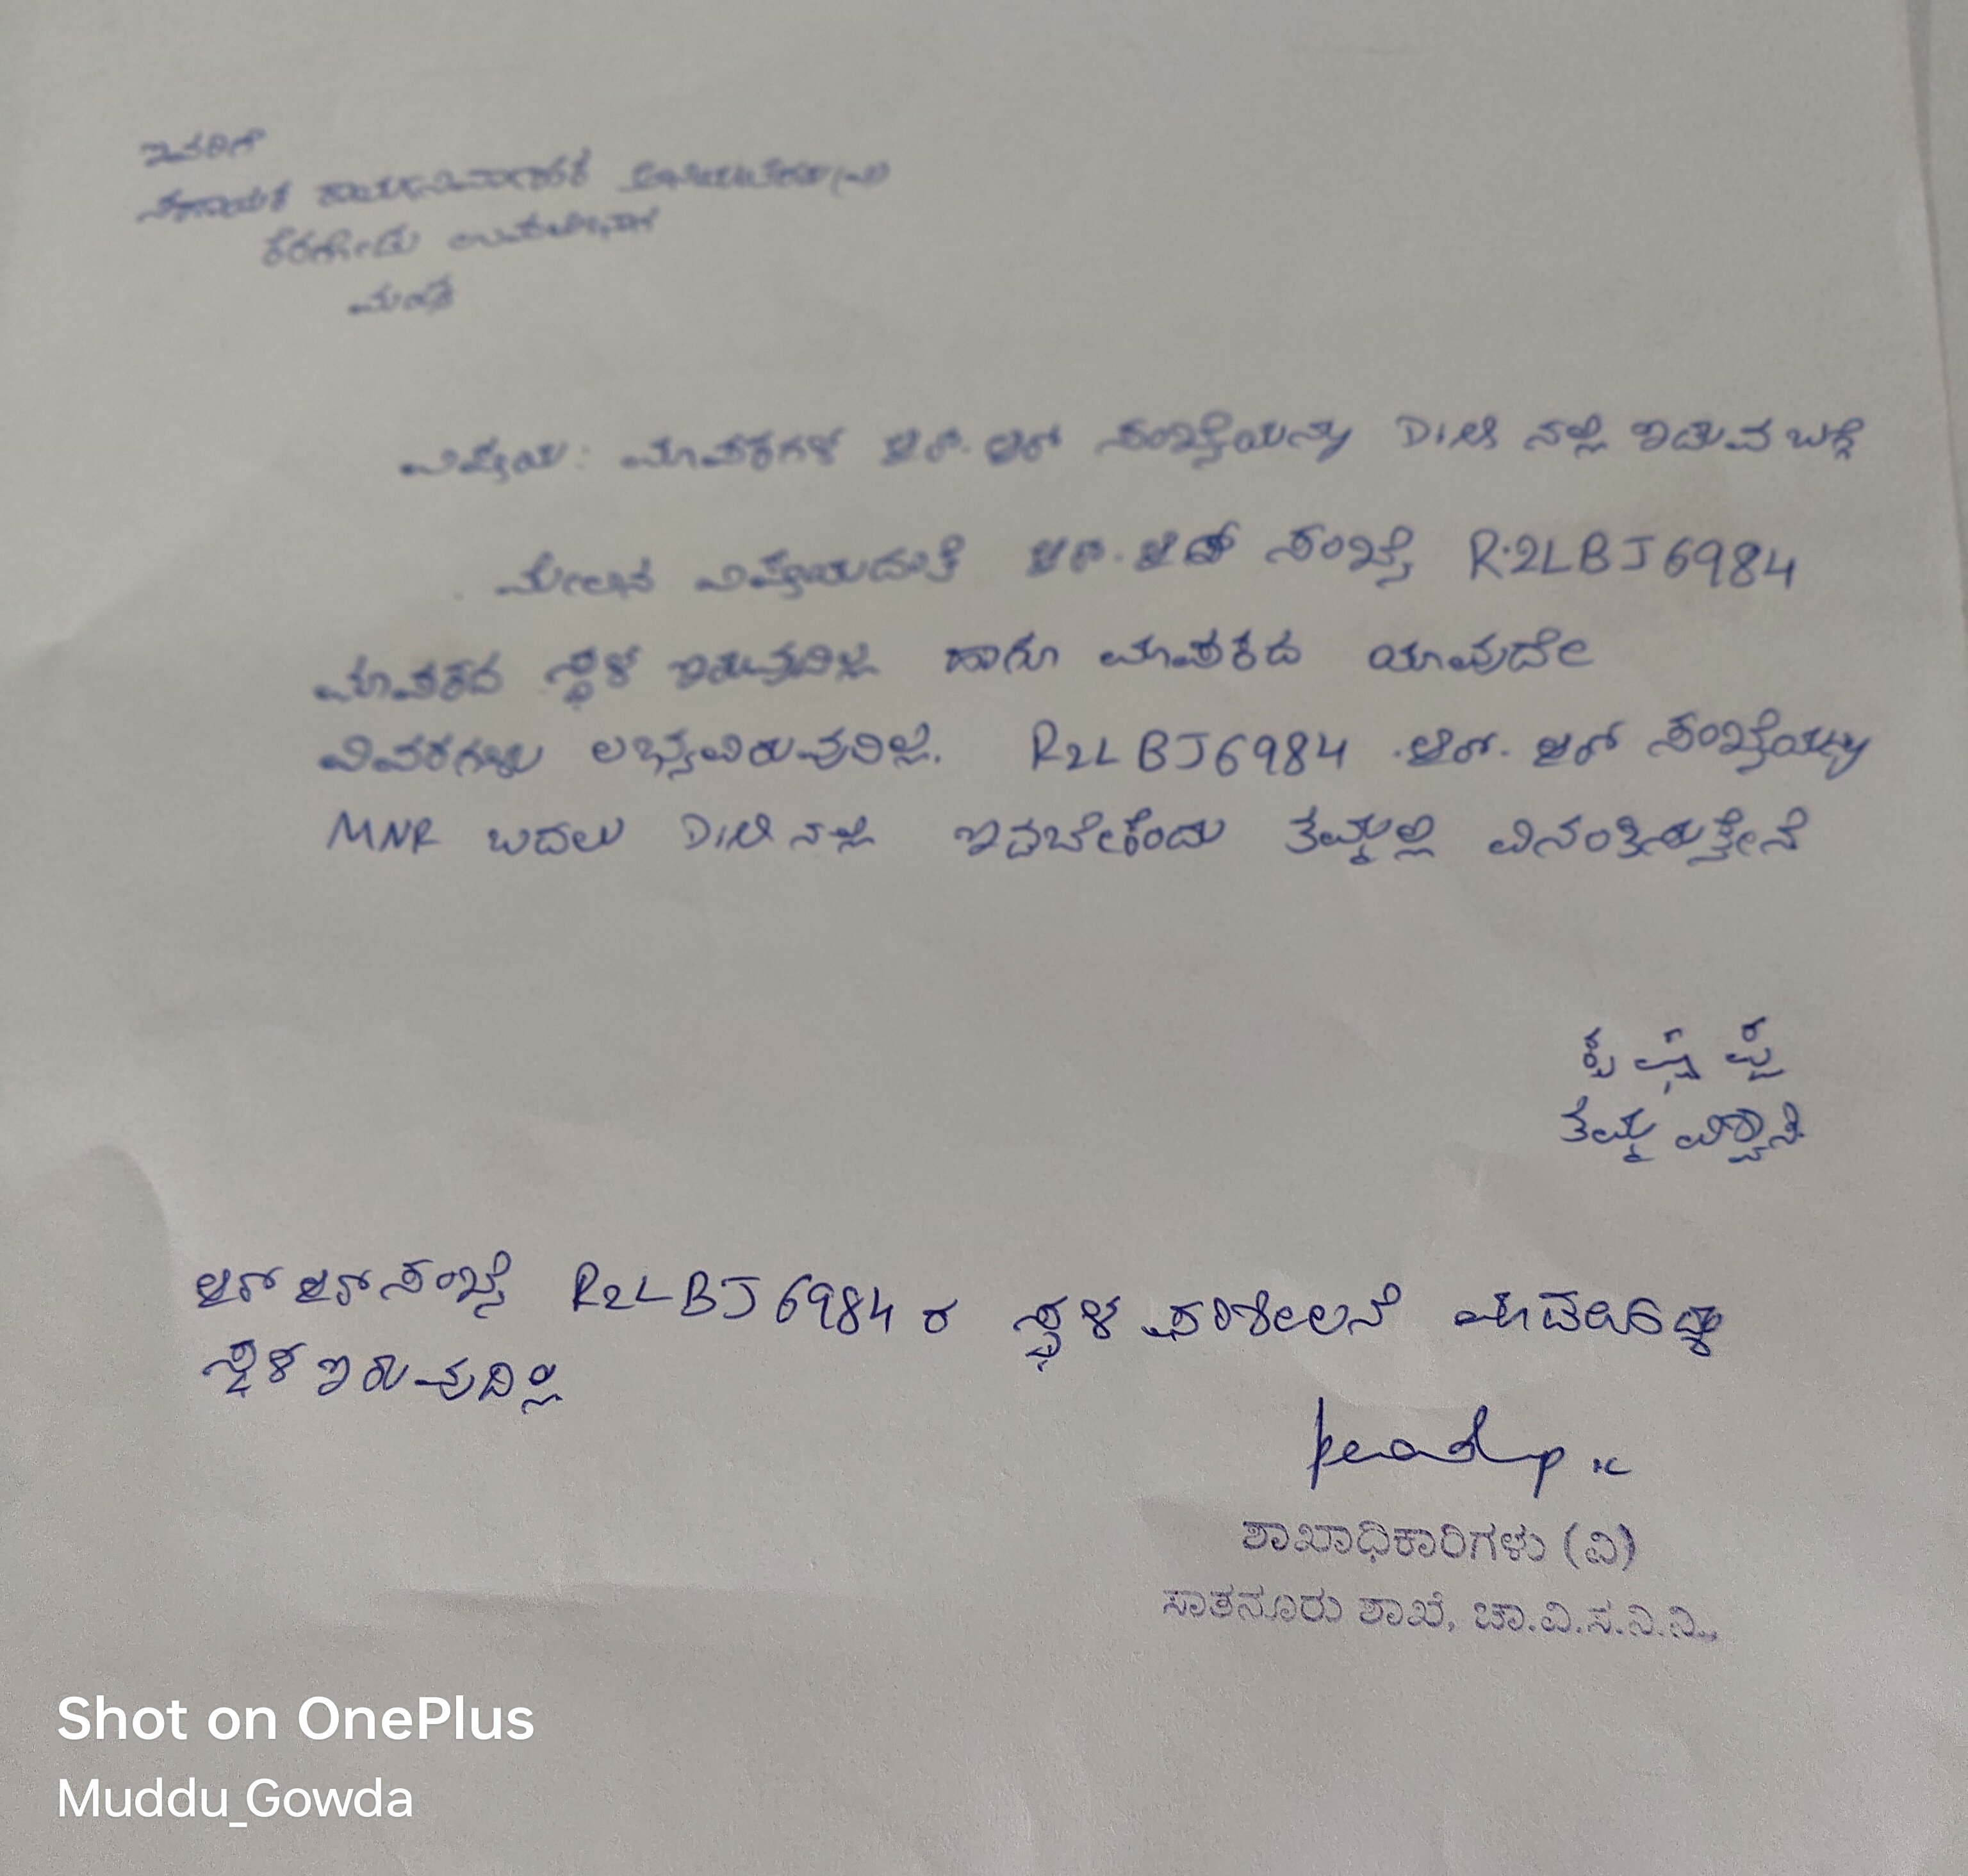 ಇವರಿಗೆ
ಸಹಾಯಕ ಕಾರ್ಯನಿರ್ವಾಹಕ ಅಭಿಯಂತರರು (ವಿ)
ಕೆರಗೋಡು ಉಪವಿಭಾಗ
ಮಂಡ್ಯ
ವಿಷಯ: ಮಾಪಕಗಳ ಆರ್. ಆರ್ ಸಂಖ್ಯೆಯನ್ನು ನಲ್ಲಿ ಇಡುವ ಬಗ್ಗೆ
ಮೇಲಿನ ವಿಷಯದಂತೆ ಆರ್. ಆರ್ ಸಂಖ್ಯೆ R2LBJ6984
ಮಾಪಕದ ಸ್ಥಳ ಇರುವುದಿಲ್ಲ ಹಾಗೂ ಮಾಪಕದ ಯಾವುದೇ
ವಿವರಗಳು ಲಭ್ಯವಿರುವುದಿಲ್ಲ. R2LBJ6984 ಆರ್. ಆರ್ ಸಂಖ್ಯೆಯನ್ನು
MNR ಬದಲು ನಲ್ಲಿ ಇಡಬೇಕೆಂದು ತಮ್ಮಲ್ಲಿ ವಿನಂತಿಸುತ್ತೇನೆ
ತಮ್ಮ ವಿಶ್ವಾಸಿ
ಆರ್ ಆರ್ ಸಂಖ್ಯೆ R2LBJ6984 ರ ಸ್ಥಳ ಪರಿಶೀಲನೆ
ಸ್ಥಳ ಇರುವುದಿಲ್ಲ
ಶಾಖಾಧಿಕಾರಿಗಳು (ವಿ)
ಸಾತನೂರು ಶಾಖೆ, ಚಾ.ವಿ.ಸ.ನಿ.ನಿ.,
Shot on OnePlus
Muddu_Gowda